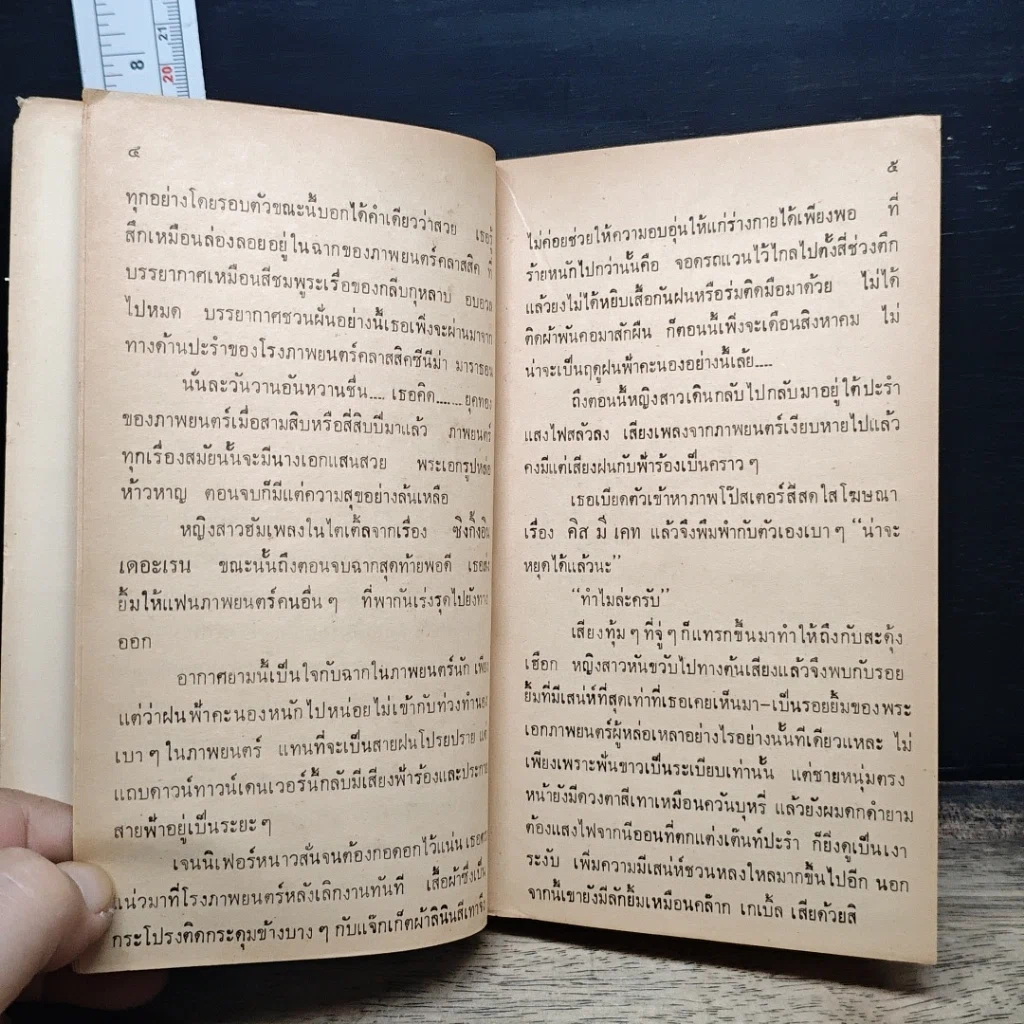 8
20
21
๔
ทุกอย่างโดยรอบตัวขณะนี้บอกได้คำเดียวว่าสวย เธอรู้
สึกเหมือนล่องลอยอยู่ในฉากของภาพยนตร์คลาสสิค ที่
บรรยากาศเหมือนสีชมพูระเรื่อของกลีบกุหลาบ อบอวล
ไปหมด บรรยากาศชวนฝันอย่างนี้เธอเพิ่งจะผ่านมาจาก
ทางด้านประรำของโรงภาพยนตร์คลาสสิคซีนีม่า มาราธอน
นั่นละวันวานอันหวานชื่น.... เธอคิด.......ยุคทอง
ของภาพยนตร์เมื่อสามสิบหรือสี่สิบปีมาแล้ว ภาพยนตร์
ทุกเรื่องสมัยนั้นจะมีนางเอกแสนสวย พระเอกรูปหล่อ
ห้าวหาญ ตอนจบก็มีแต่ความสุขอย่างล้นเหลือ
หญิงสาวฮัมเพลงในไตเติ้ลจากเรื่อง ซิงกิ้งอิน
เดอะเรน ขณะนั้นถึงตอนจบฉากสุดท้ายพอดี เธอส่ง
ยิ้มให้แฟนภาพยนตร์คนอื่นๆ ที่พากันเร่งรุดไปยังทาง
ออก
อากาศยามนี้เป็นใจกับฉากในภาพยนตร์นัก เพียง
แต่ว่าฝนฟ้าคะนองหนักไปหน่อยไม่เข้ากับท่วงทำนอง
เบาๆ ในภาพยนตร์ แทนที่จะเป็นสายฝนโปรยปราย แต่
แถบดาวน์ทาวน์เดนเวอร์นี้กลับมีเสียงฟ้าร้องและประกาย
สายฟ้าอยู่เป็นระยะๆ
เจนนิเฟอร์หนาวสั่นจนต้องกอดอกไว้แน่น เธอ
แน่วมาที่โรงภาพยนตร์หลังเลิกงานทันที เสื้อผ้าซึ่งเป็น
กระโปรงติดกระดุมข้างบางๆ กับแจ๊กเก็ตผ้าลินินสีเทาจึง
๕
ไม่ค่อยช่วยให้ความอบอุ่นให้แก่ร่างกายได้เพียงพอ ที่
ร้ายหนักไปกว่านั้นคือ จอดรถแวนไว้ไกลไปตั้งสี่ช่วงตึก
แล้วยังไม่ได้หยิบเสื้อกันฝนหรือร่มติดมือมาด้วย ไม่ได้
ติดผ้าพันคอมาสักผืน ก็ตอนนี้เพิ่งจะเดือนสิงหาคม ไม่
น่าจะเป็นฤดูฝนฟ้าคะนองอย่างนี้เล้ย....
ถึงตอนนี้หญิงสาวเดินกลับไปกลับมาอยู่ใต้ปะรำ
แสงไฟสลัวลง เสียงเพลงจากภาพยนตร์เงียบหายไปแล้ว
คงมีแต่เสียงฝนกับฟ้าร้องเป็นคราวๆ
เธอเบียดตัวเข้าหาภาพโป๊สเตอร์สีสดใสโฆษณา
เรื่อง คิส มี เคท แล้วจึงพึมพำกับตัวเองเบาๆ “น่าจะ
หยุดได้แล้วนะ”
“ทำไมล่ะครับ”
เสียงทุ้มๆ ที่จู่ๆ ก็แทรกขึ้นมาทำให้ถึงกับสะดุ้ง
เฮือก หญิงสาวหันขวับไปทางต้นเสียงแล้วจึงพบกับรอย
ยิ้มที่มีเสน่ห์ที่สุดเท่าที่เธอเคยเห็นมา—เป็นรอยยิ้มของพระ
เอกภาพยนตร์ผู้หล่อเหลาอย่างไรอย่างนั้นทีเดียวแหละ ไม่
เพียงเพราะฟันขาวเป็นระเบียบเท่านั้น แต่ชายหนุ่มตรง
หน้ายังมีดวงตาสีเทาเหมือนควันบุหรี่ แล้วยังผมดกดำยาม
ต้องแสงไฟจากนีออนที่ตกแต่งเต๊นท์ปะรำ ก็ยิ่งดูเป็นเงา
ระงับ เพิ่มความมีเสน่ห์ชวนหลงใหลมากขึ้นไปอีก นอก
จากนี้เขายังมีลักยิ้มเหมือนคล๊าก เกเบิ้ล เสียด้วยสิ